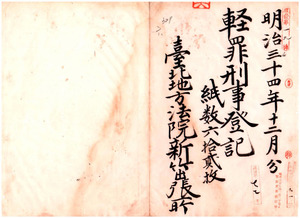 明治三十四年十二月分
軽罪刑事登記
紙数六拾貳枚
臺北地方法院新竹出張所